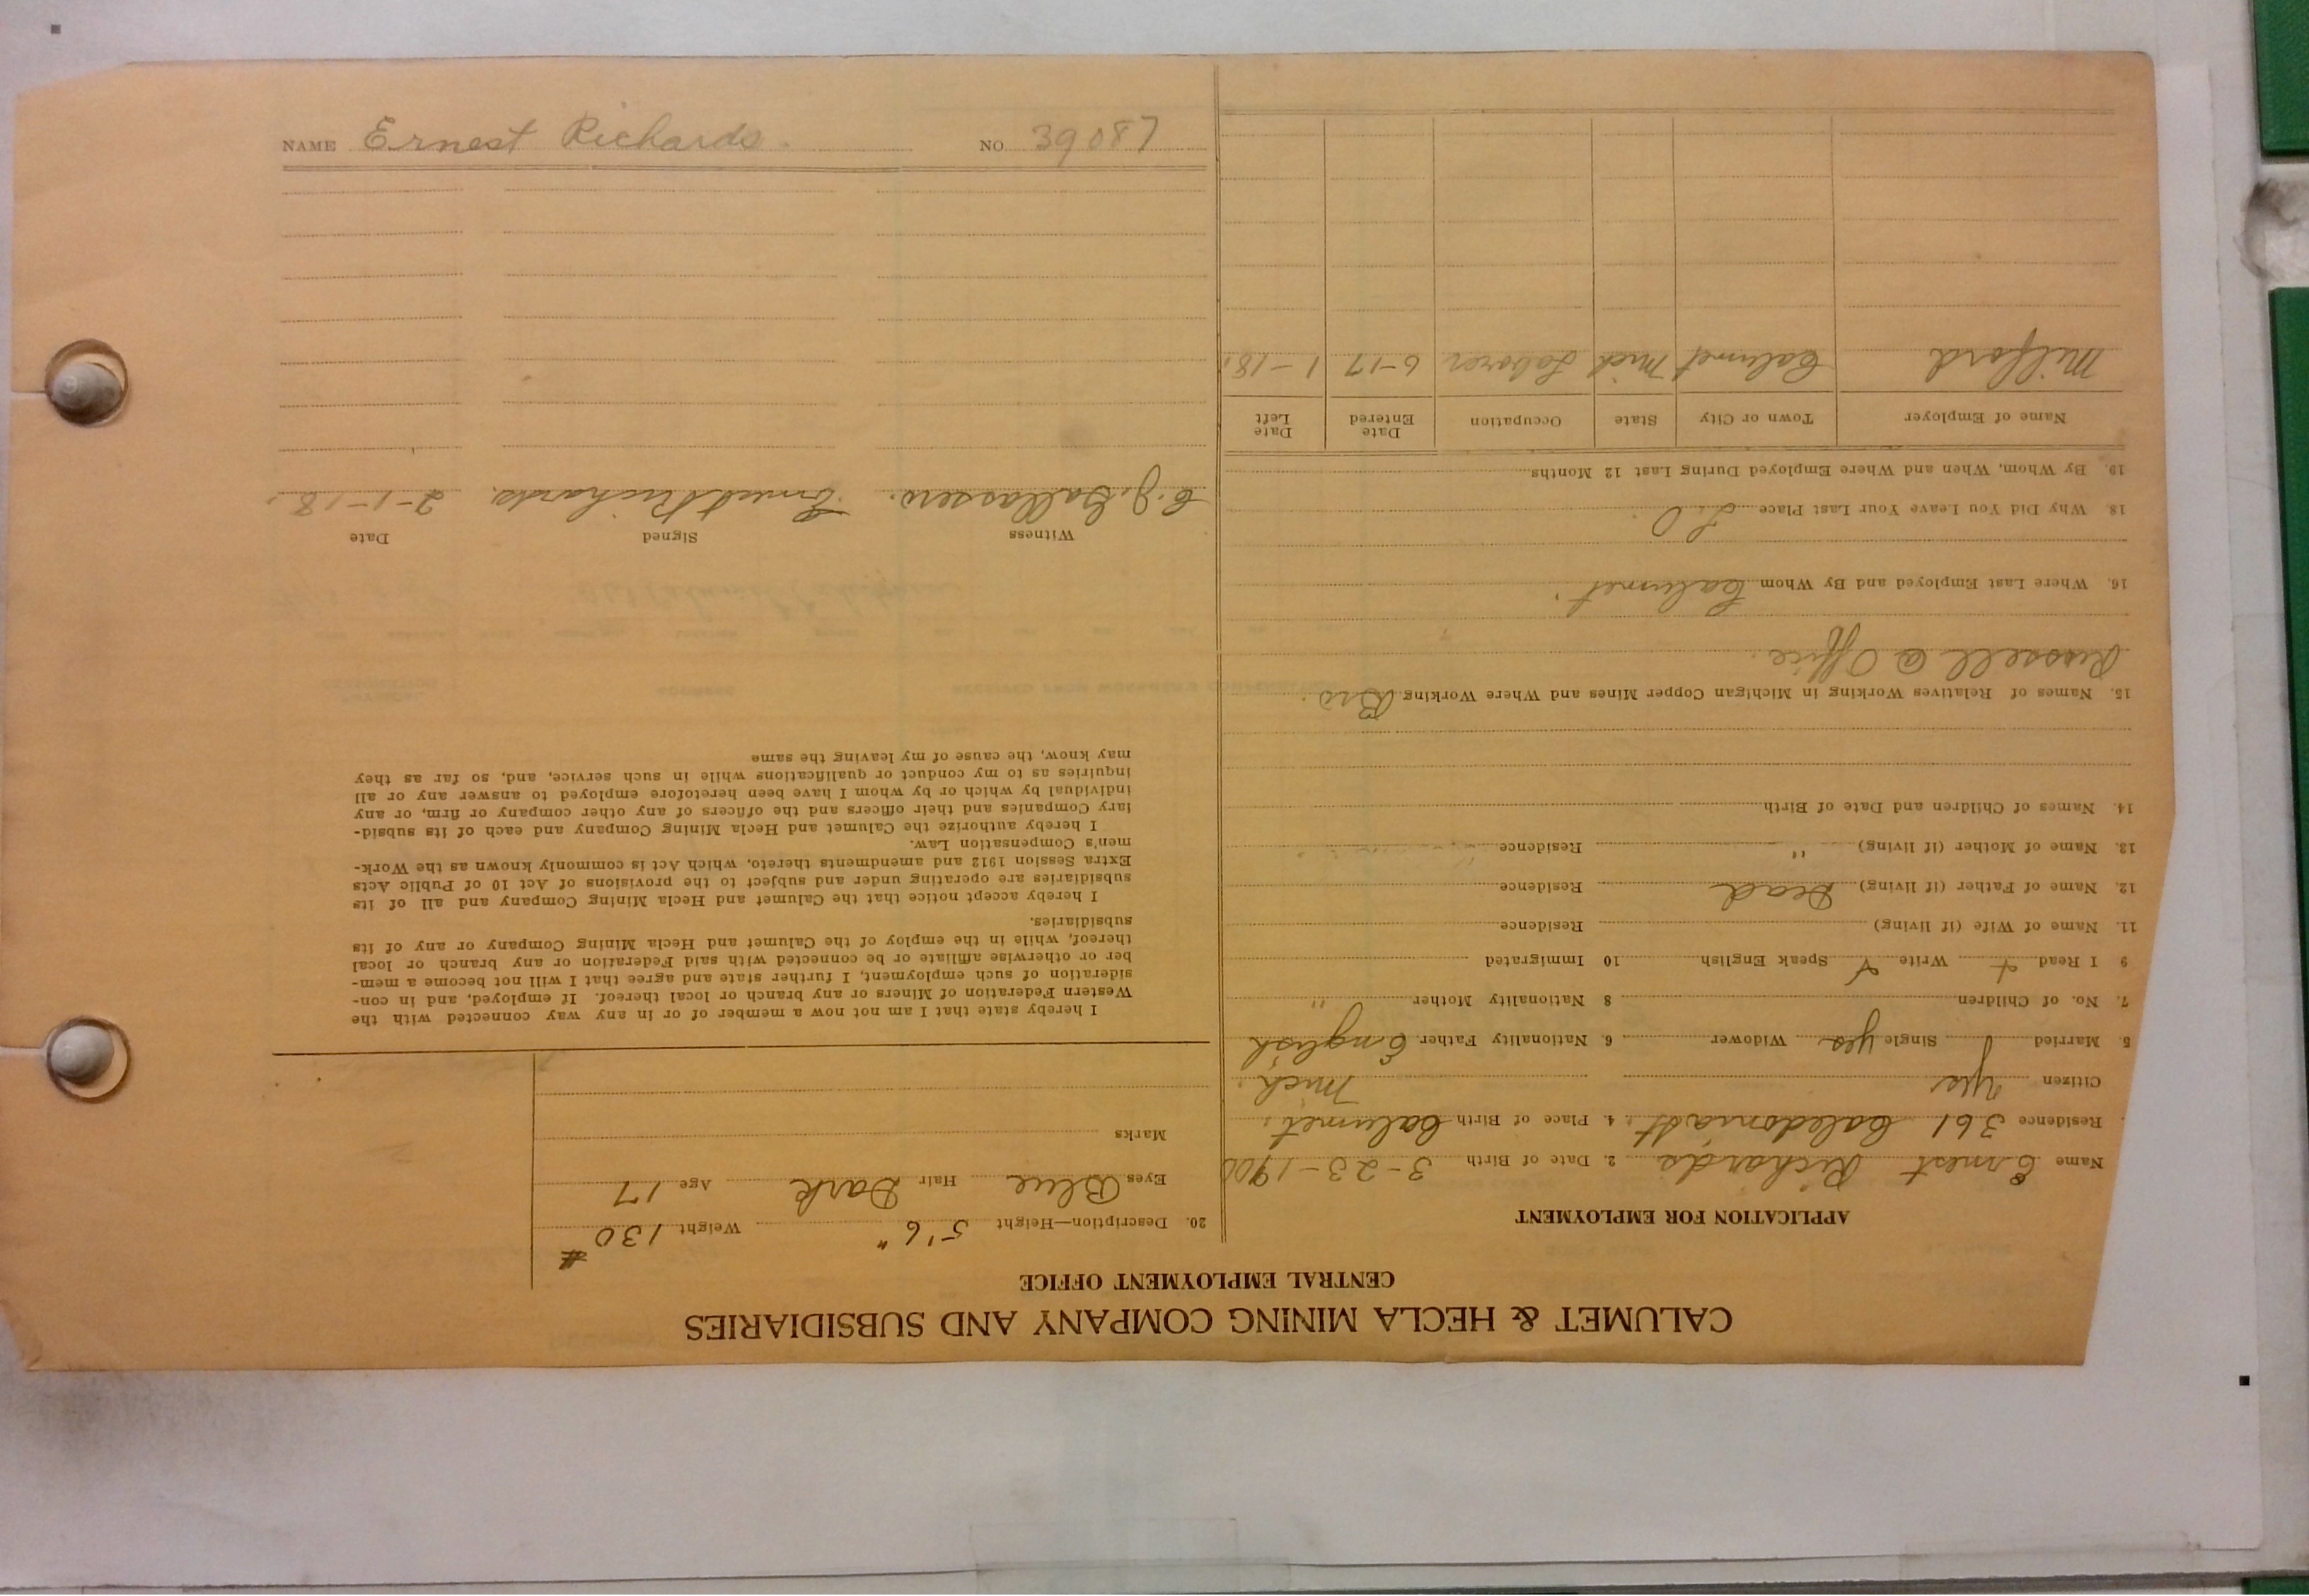 CALUMET & HECLA MINING COMPANY AND SUBSIDIARIES
CENTRAL EMPLOYMENT OFFICE
APPLICATION FOR EMPLOYMENT
Name Ernest Richards 2. Date of Birth 3-23-1900
Residence 361 Caledonia St. 4. Place of Birth Calumet,
Citizen Yes Mich.
5. Married Single yes Widower 6. Nationality Father English
7. No. of Children 8 Nationality Mother "
9 I Read Write Speak English 10 Immigrated
11. Name of Wife (if living) Residence
12. Name of Father (if living) Dead Residence
13. Name of Mother (if living) " Residence
14. Names of Children and Date of Birth
15. Names of Relatives Working in Michigan Copper Mines and Where Working Bro.
Russell @ Office.
16. Where Last Employed and By Whom Calumet.
18. Why Did You Leave Your Last Place L.O.
19. By Whom, When and Where Employed During Last 12 Months
Name of Employer Town or City State Occupation Date Entered Date Left
Milford Calumet Mich Laborer 6-17 1-18
20. Description—Height 5'6" Weight 130 #
Eyes Blue Hair Dark Age 17
Marks
I hereby state that I am not now a member of or in any way connected with the
Western Federation of Miners or any branch or local thereof. If employed, and in con-
sideration of such employment, I further state and agree that I will not become a mem-
ber or otherwise affiliate or be connected with said Federation or any branch or local
thereof, while in the employ of the Calumet and Hecla Mining Company or any of its
subsidiaries.
I hereby accept notice that the Calumet and Hecla Mining Company and all of its
subsidiaries are operating under and subject to the provisions of Act 10 of Public Acts
Extra Session 1912 and amendments thereto, which Act is commonly known as the Work-
men's Compensation Law.
I hereby authorize the Calumet and Hecla Mining Company and each of its subsid-
iary Companies and their officers and the officers of any other company or firm, or any
individual by which or by whom I have been heretofore employed to answer any or all
inquiries as to my conduct or qualifications while in such service, and, so far as they
may know, the cause of my leaving the same
Witness Signed Date
Ernest Richards. 2-1-18.
NAME Ernest Richards. NO. 39087